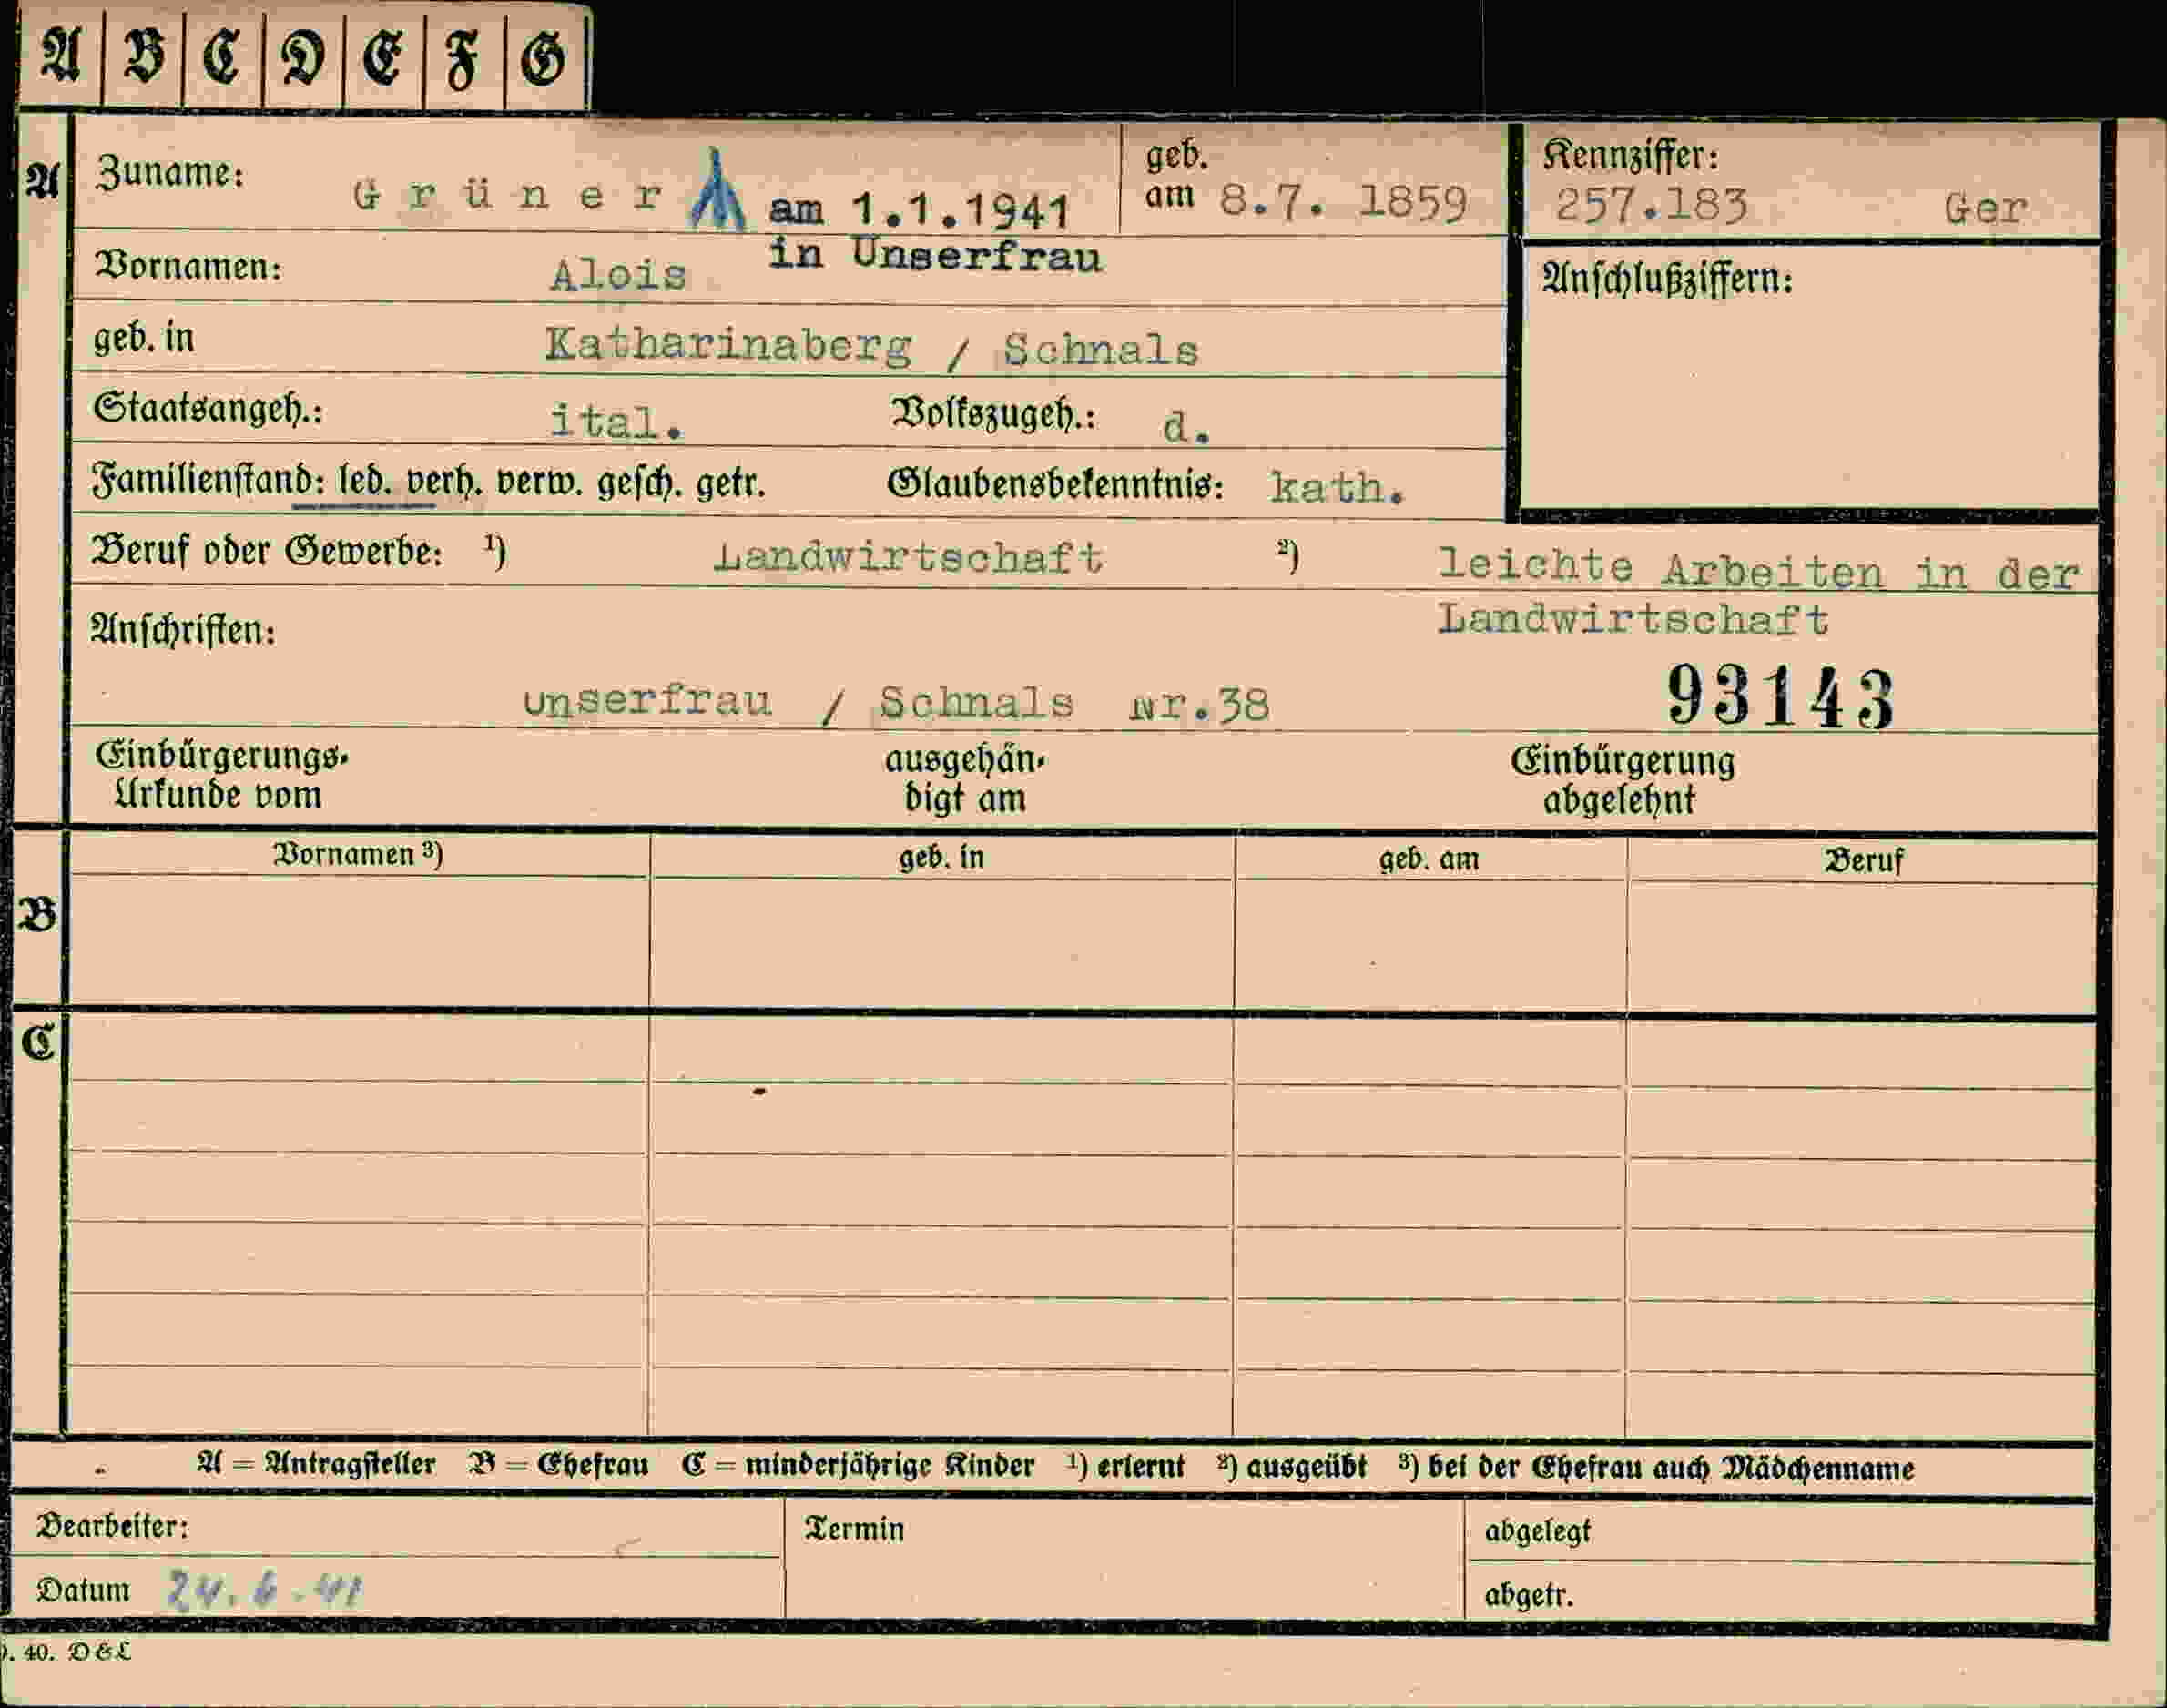 A B C D E F G
A Zuname: Grüner am 1.1.1941 geb. am 8.7. 1859 Kennziffer: 257.183 Ger
Vornamen: Alois in Unserfrau
Anschlußziffern:
geb. in Katharinaberg / Schnals
Staatsangeh.: ital. Volkszugeh.: d.
Familienstand: led. verh. verw. gesch. getr. Glaubensbekenntnis: kath.
Beruf oder Gewerbe: ¹) Landwirtschaft ²) leichte Arbeiten in der
Landwirtschaft
Anschriften:
93143
unserfrau / Schnals Nr.38
Einbürgerungs- ausgehän- Einbürgerung
Urkunde vom digt am abgelehnt
Vornamen ³) geb. in geb. am Beruf
B
C
A = Antragsteller B = Ehefrau C = minderjährige Kinder ¹) erlernt ²) ausgeübt ³) bei der Ehefrau auch Mädchenname
Bearbeiter: Termin abgelegt
Datum 24.6.41 abgetr.
40. D&L